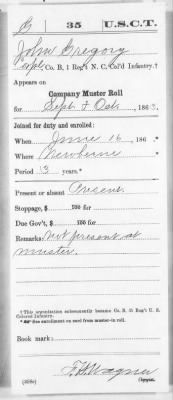 G | 35 | U.S.C.T.
John Gregory
Co. B, 1 Reg't N. C. Col'd Infantry.†
Appears on
Company Muster Roll
for Sept & Oct, 1863.
Joined for duty and enrolled:
When June 16, 186 .*
Where Newberne
Period 3 years.*
Present or absent Present
Stoppage, $ 100 for
Due Gov't, $ 100 for
Remarks: Not present at
muster.
† This organization subsequently became Co. B, 35 Reg't U. S.
Colored Infantry.
*See enrollment on card from muster-in roll.
Book mark:
F. H. Wagner
Copyist.